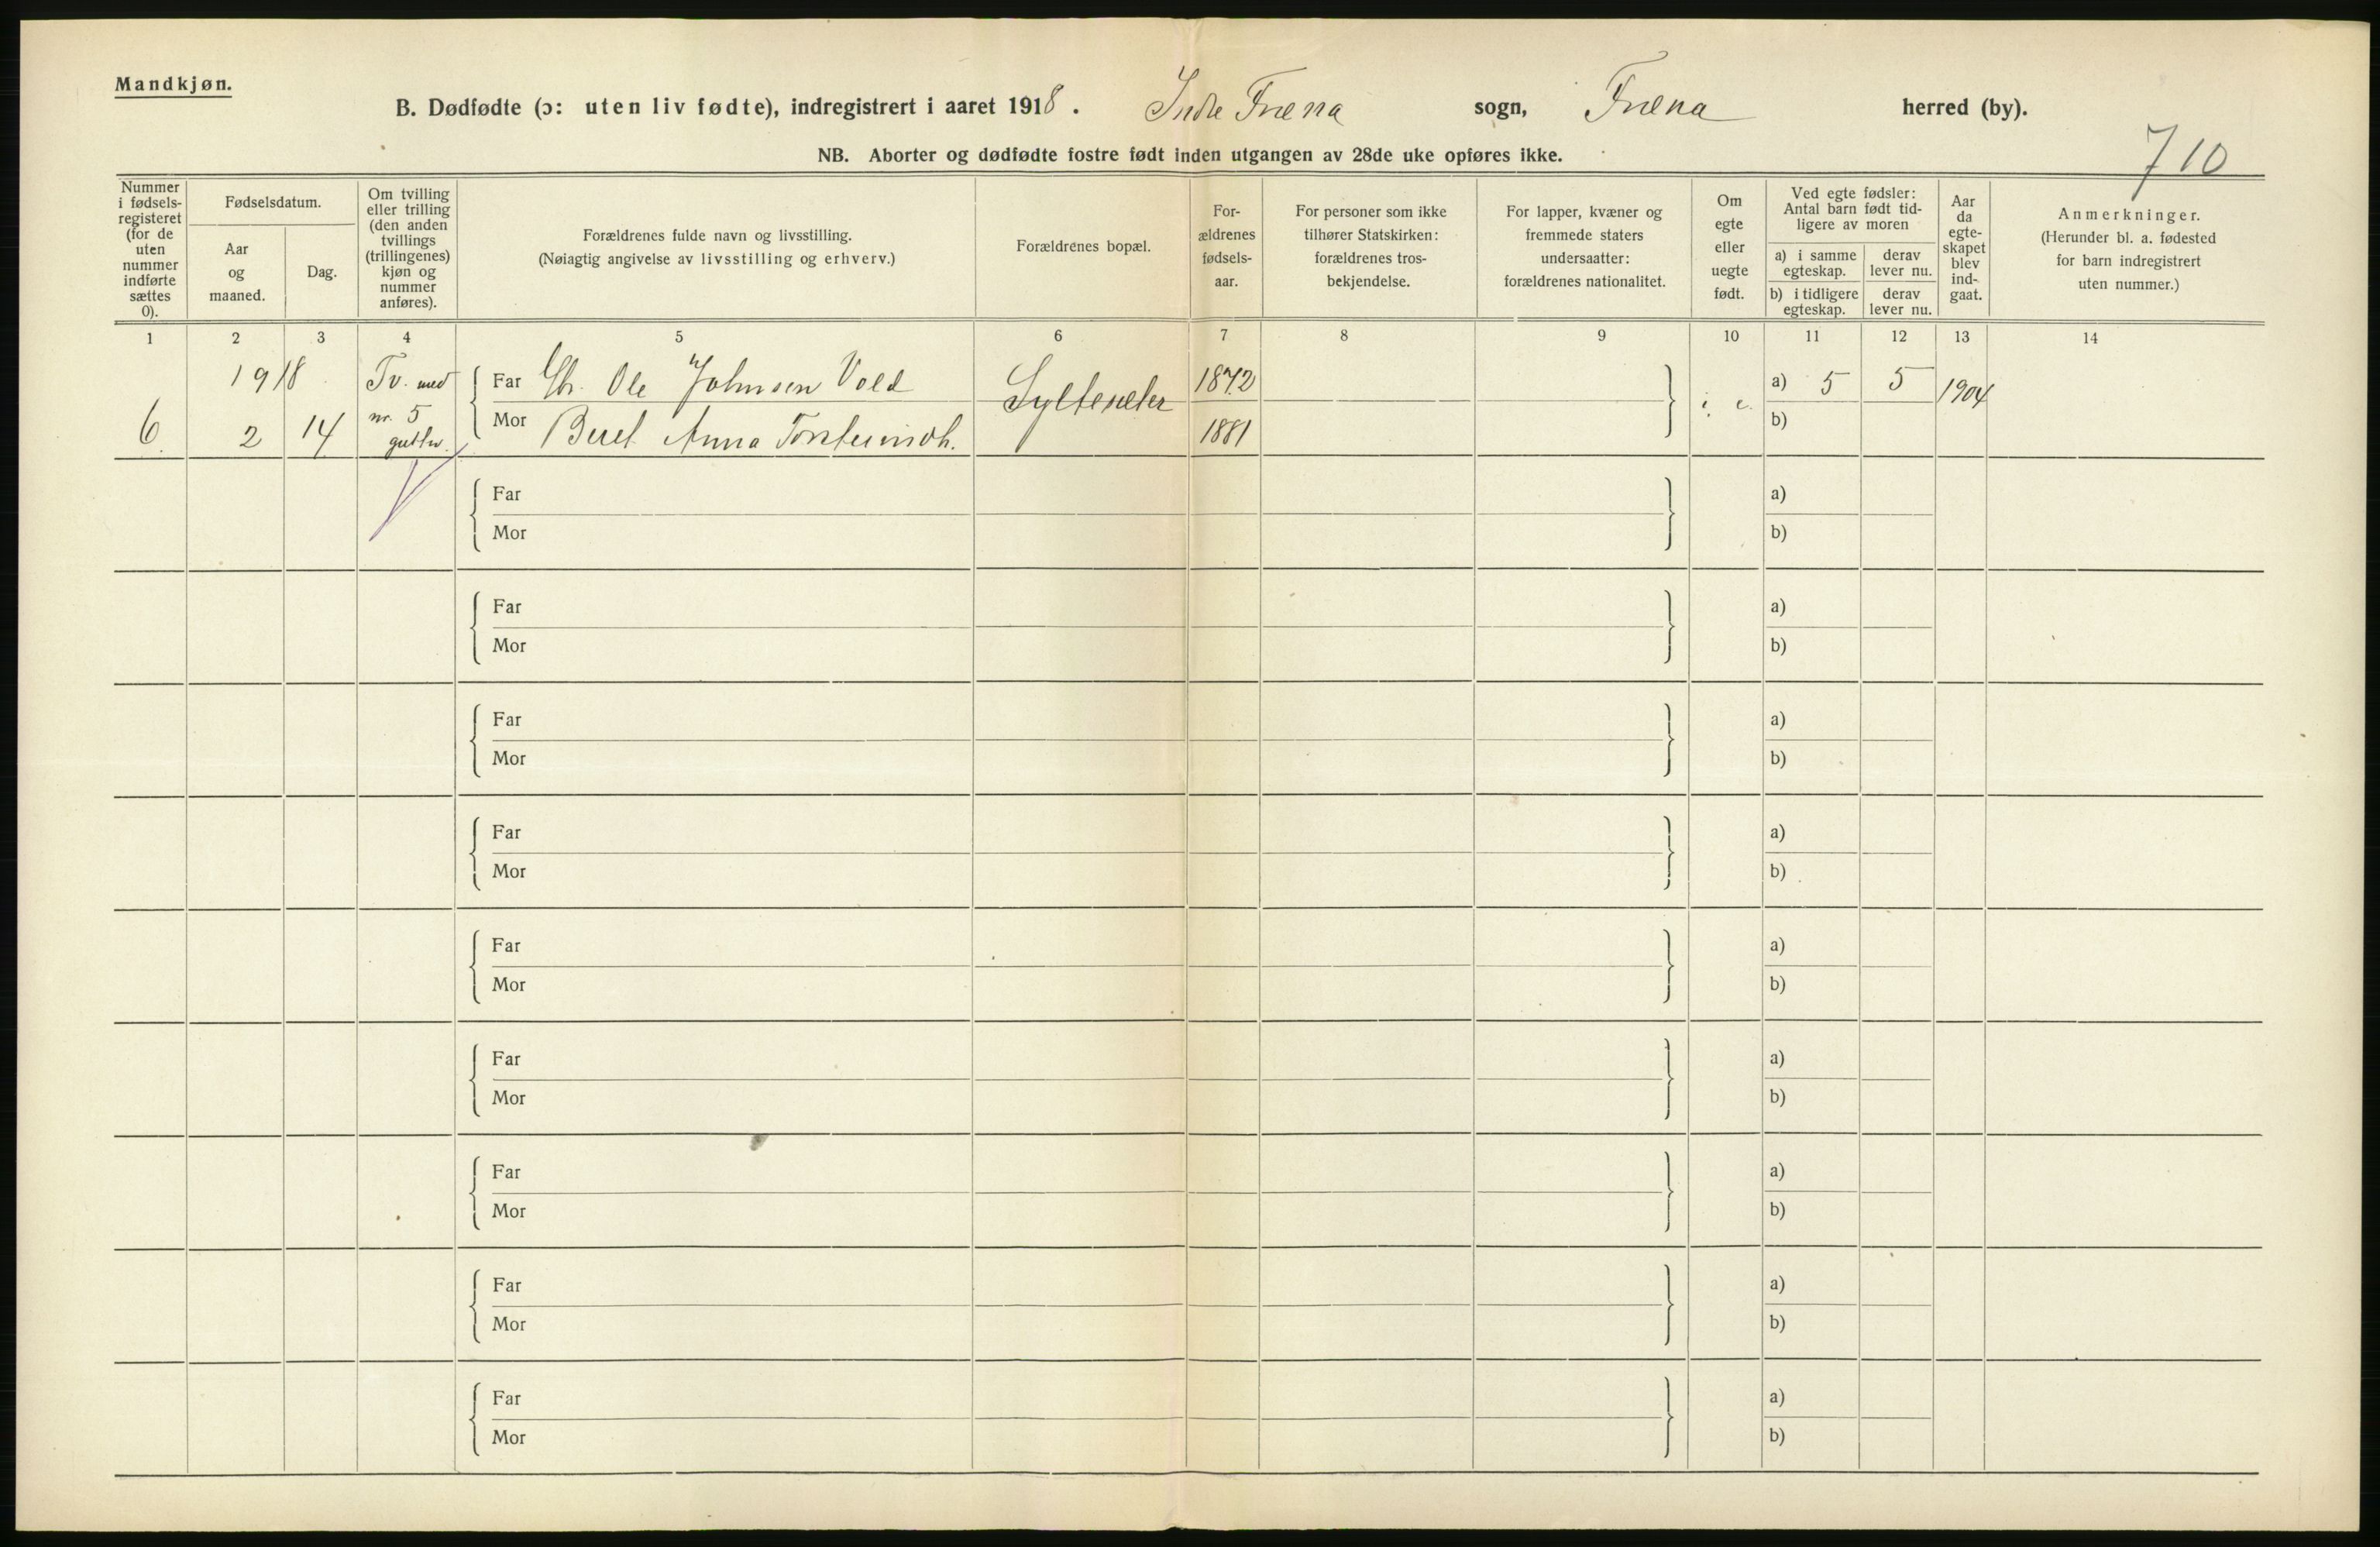 Mandkjøn.
B. Dødfødte (ɔ: uten liv fødte), indregistrert i aaret 1918. Indre Fræna sogn, Fræna herred (by).
NB. Aborter og dødfødte fostre født inden utgangen av 28de uke opføres ikke.
710
Nummer
i fødsels-
registeret
(for de
uten
nummer
indførte
sættes
0).
Fødselsdatum.
Aar
og
maaned.
Dag.
Om tvilling
eller trilling
(den anden
tvillings
(trillingenes)
kjøn og
nummer
anføres).
Forældrenes fulde navn og livsstilling.
(Nøiagtig angivelse av livsstilling og erhverv.)
Forældrenes bopæl.
For-
ældrenes
fødsels-
aar.
For personer som ikke
tilhører Statskirken:
forældrenes tros-
bekjendelse.
For lapper, kvæner og
fremmede staters
undersaatter:
forældrenes nationalitet.
Om
egte
eller
uegte
født.
Ved egte fødsler:
Antal barn født tid-
ligere av moren
a) i samme
egteskap.
derav
lever nu.
b) i tidligere
egteskap.
derav
lever nu.
Aar
da
egte-
skapet
blev
ind-
gaat.
Anmerkninger.
(Herunder bl. a. fødested
for barn indregistrert
uten nummer.)
1 2 3 4 5 6 7 8 9 10 11 12 13 14
1918 Tv. med Far Ole Johnsen Vold 1872 a) 5 5 1904
6. 2 14 nr. 5 Mor Beret Anna 1881 b)
Far a)
Mor b)
Far a)
Mor b)
Far a)
Mor b)
Far a)
Mor b)
Far a)
Mor b)
Far a)
Mor b)
Far a)
Mor b)
Far a)
Mor b)
Far a)
Mor b)